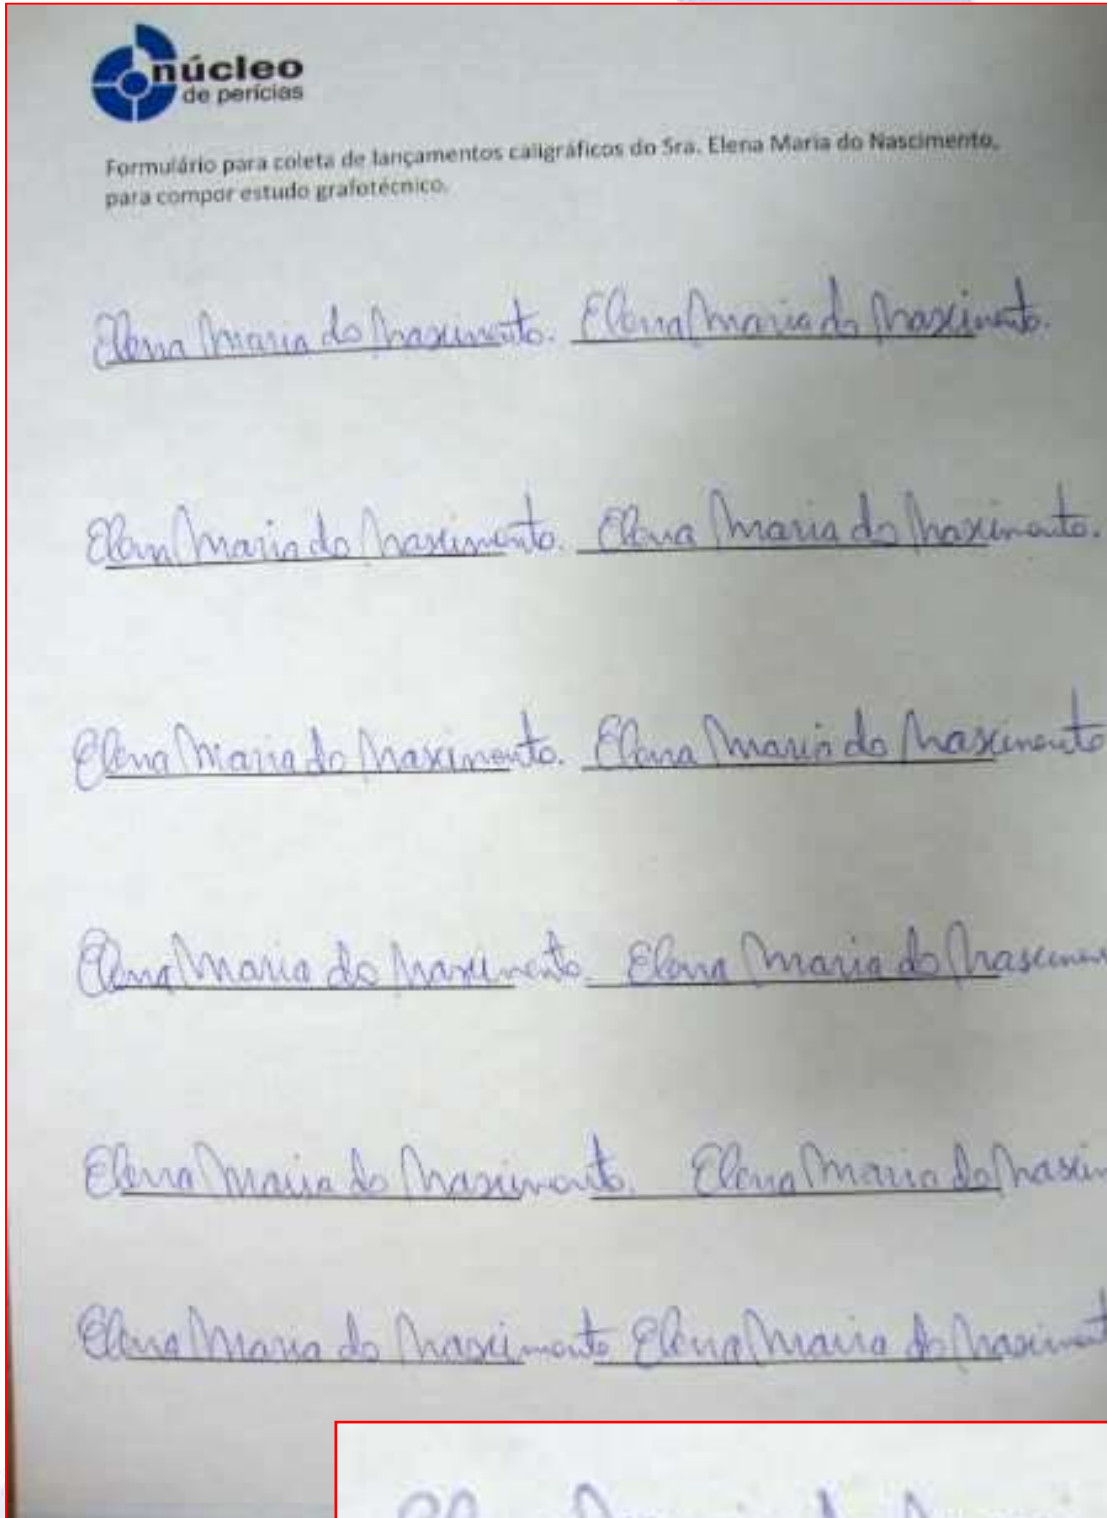 núcleo
de perícias
Formulário para coleta de lançamentos caligráficos do Sra. Elena Maria do Nascimento,
para compor estudo grafotécnico.
Elena Maria do Nascimento. Elena Maria do Nascimento.
Elena Maria do Nascimento. Elena Maria do Nascimento.
Elena Maria do Nascimento. Elena Maria do Nascimento
Elena Maria do Nascimento. Elena Maria do Nascimen
Elena Maria do Nascimento. Elena Maria do Nascim
Elena Maria do Nascimento Elena Maria do Nasciment